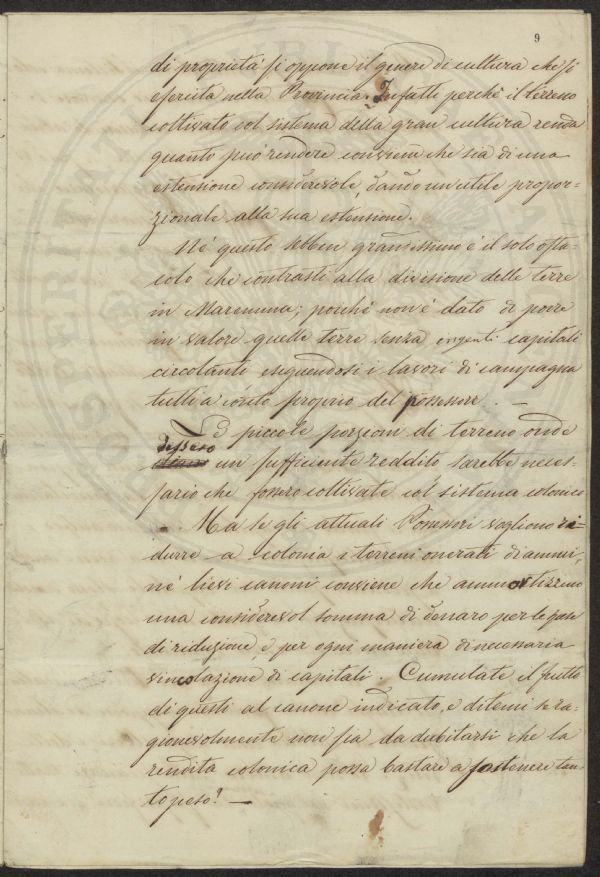 9
di proprietà si oppone il genere di cultura che si
esercita nella Provincia. Infatti perchè il terreno
coltivato col sistema della gran cultura renda
quanto può rendere conviene che sia di una
estensione considerevole, dando un utile propor=
zionale alla sua estensione.
Nè questo sebben gravissimo è il solo osta=
colo che contrasti alla divisione delle terre
in Maremma; poichè non è dato di porre
in valore quelle terre senza ingenti capitali
circolanti eseguendosi i lavori di campagna
tutti a conto proprio del possessore. —
Le piccole porzioni di terreno onde
dessero
un sufficiente reddito sarebbe neces=
sario che fossero coltivate col sistema colonico
. Ma se gli attuali Possessori vogliono ri=
durre a colonia i terreni onerati di annui,
nè lievi canoni conviene che ammortizzino
una considerevol somma di denaro per le spese
di riduzione, e per ogni maniera di necessaria
vincolazione di capitali. Cumulate il frutto
di questi al canone indicato, e ditemi se ra=
gionevolmente non sia da dubitarsi che la
rendita colonica possa bastare a sostenere tan=
to peso? —